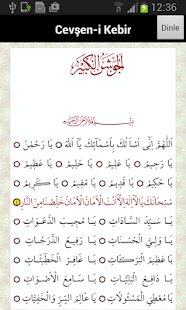 12:36
Cevşen-i Kebir
Dinle
اَلْجَوْشَنُ الْكَبِيرُ
بِسْمِ اللهِ الرَّحْمٰنِ الرَّحِيمِ
اَللّٰهُمَّ اِنِّى اَسْاَلُكَ بِاَسْمَائِكَ يَا اَللهُ يَا رَحْمٰنُ
يَا رَحِيمُ يَا عَلِيمُ يَا حَلِيمُ يَا عَظِيمُ
يَا حَكِيمُ يَا قَدِيمُ يَا مُقِيمُ يَا كَرِيمُ
سُبْحَانَكَ يَا لَا اِلٰهَ اِلَّا اَنْتَ الْاَمَانُ الْاَمَانُ خَلِّصْنَا مِنَ النَّارِ
يَا سَيِّدَ السَّادَاتِ يَا مُجِيبَ الدَّعَوَاتِ
يَا وَلِىَّ الْحَسَنَاتِ يَا رَفِيعَ الدَّرَجَاتِ
يَا عَظِيمَ الْبَرَكَاتِ يَا غَافِرَ الْخَطِيئَاتِ
يَا دَافِعَ الْبَلِيَّاتِ يَا سَامِعَ الْاَصْوَاتِ
يَا مُعْطِىَ الْمَسْئُولَاتِ يَا عَالِمَ السِّرِّ وَالْخَفِيَّاتِ